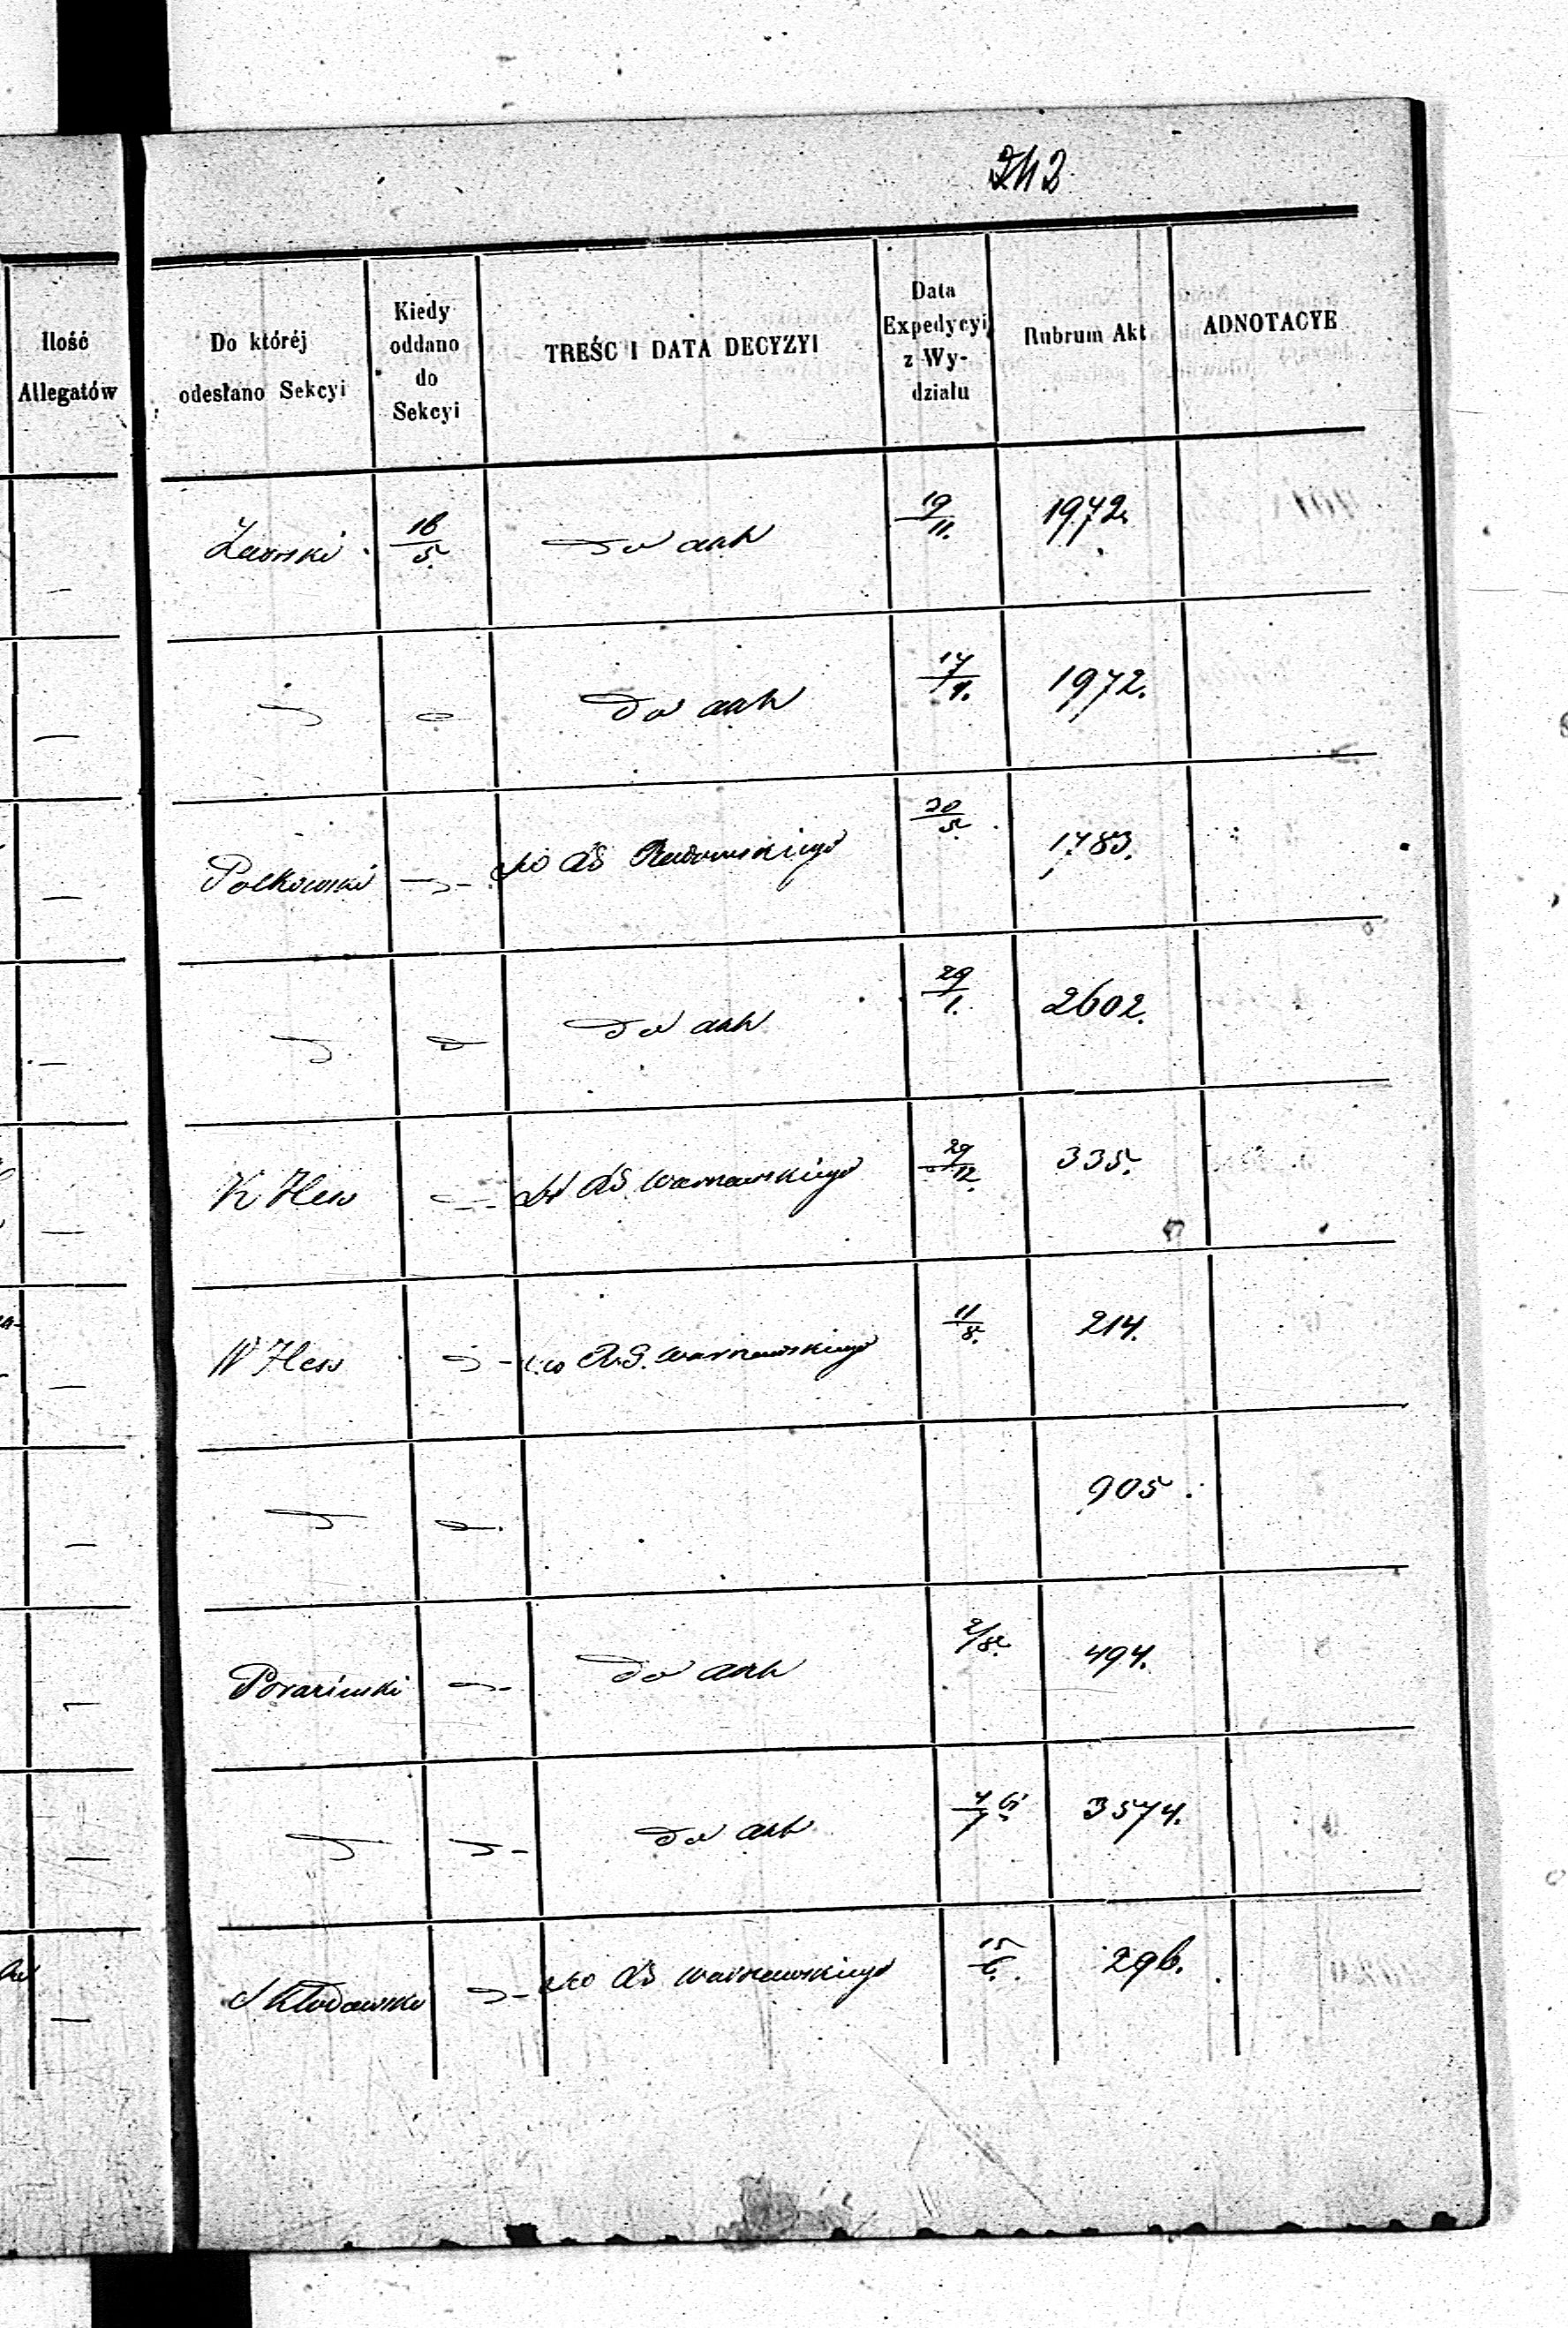 242
Ilość
Allegatów
Do któréj
odesłano Sekcyi
Kiedy
oddano
do
Sekcyi
TREŚC I DATA DECYZYI
Data
Expedycyi
z Wy-
działu
Rubrum Akt
ADNOTACYE
16/5 do akt 19/11. 1972.
do akt 1972.
Polkowski Radomskiego 20/5. 1783.
do akt 29/1. 2602.
K Hess Warszawskiego 29/12. 335.
W Hess Warszawskiego 11/8. 214.
905.
do akt 494.
do akt 3574.
Skłodowski Warszawskiego 15/6. 296.